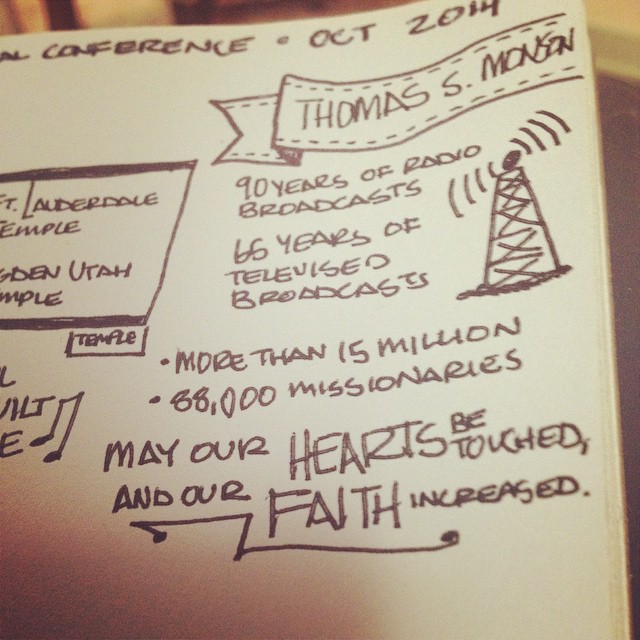 AL CONFERENCE • OCT 2014
THOMAS S. MONSON
90 YEARS OF RADIO
BROADCASTS
65 YEARS OF
TELEVISED
BROADCASTS
FT. LAUDERDALE
TEMPLE
GDEN UTAH
MPLE
TEMPLE
• MORE THAN 15 MILLION
• 88,000 MISSIONARIES
L
UILT
E
MAY OUR HEARTS BE TOUCHED,
AND OUR FAITH INCREASED.